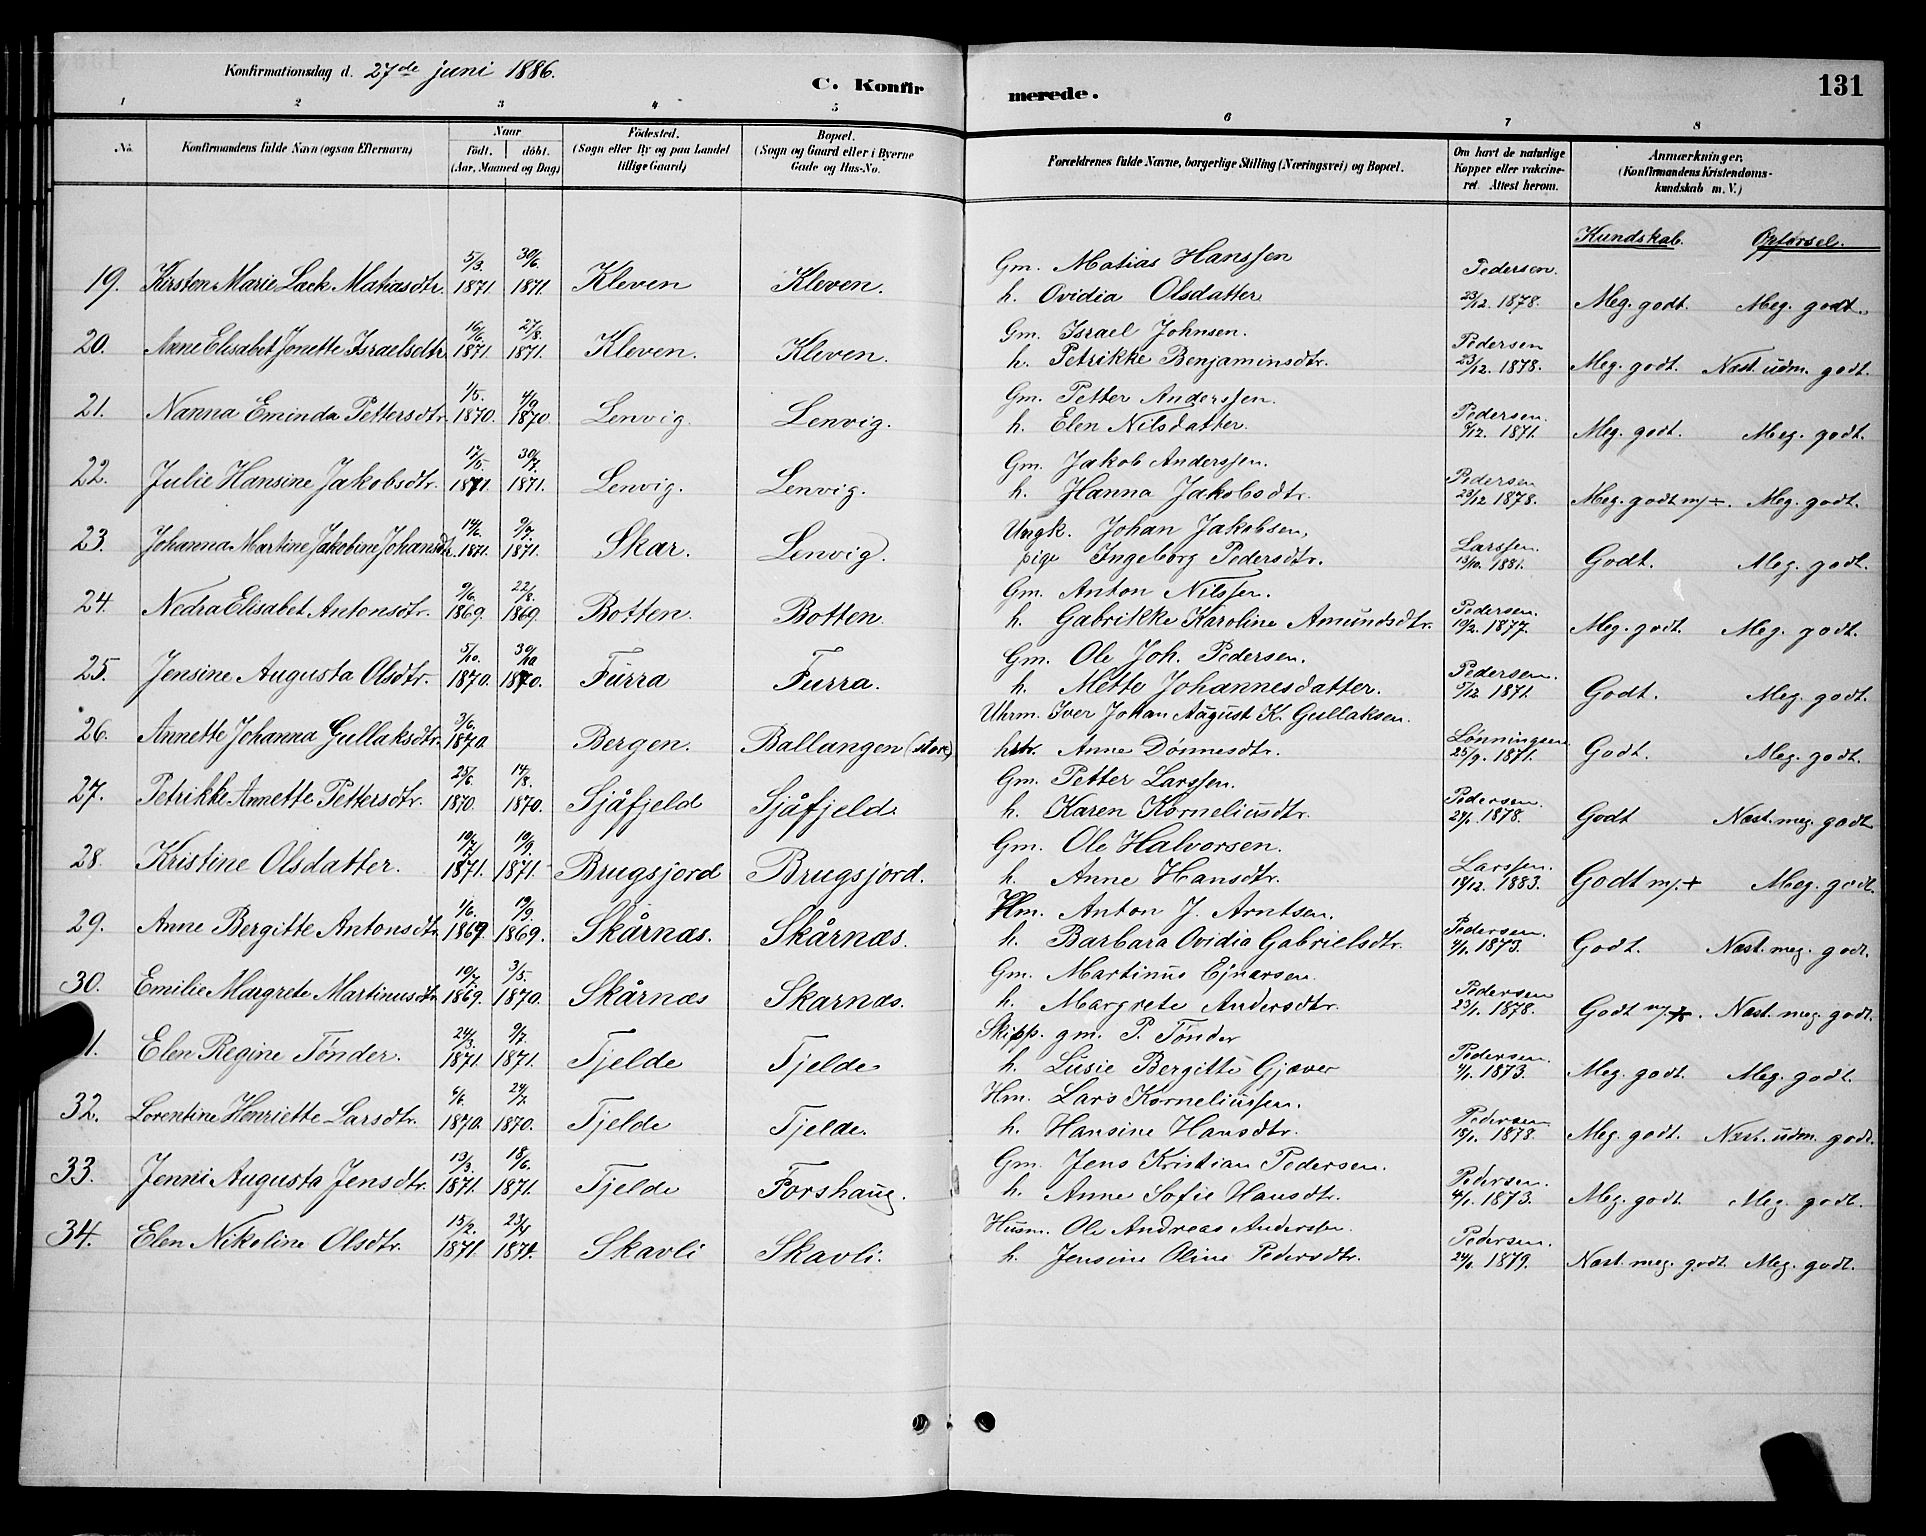 Konfirmationsdag d. 27de juni 1886.
C. Konfirmerede.
131
1 2 3 4 5 6 7 8
No. Konfirmandens fulde Navn (ogsaa Efternavn) Naar födt. döbt. (Aar, Maaned og Dag) Födested. (Sogn eller By og paa Landet tillige Gaard) Bopæl. (Sogn og Gaard eller i Byerne Gade og Hus-No. Forældrenes fulde Navne, borgerlige Stilling (Næringsvei) og Bopæl. Om havt de naturlige Kopper eller vakcineret. Attest herom. Anmærkninger. (Konfirmandens Kristendomskundskab m. V.)
Kundskab. Opførsel.
19. Kirsten Marie Lack Matiasdtr. 5/3. 1871 30/6. 1871. Kleven Kleven. Gm. Matias Hanssen
h. Ovidia Olsdatter Pedersen. 23/12. 1878. Meg. godt. Meg. godt.
20. Anne Elisabet Jonette Israelsdtr. 16/6. 1871. 27/8. 1871. Kleven. Kleven. Gm. Israel Johnsen.
h. Petrikke Benjaminsdtr. Pedersen 23/12. 1878. Meg. godt. Næst. udm. godt.
21. Nanna Eminda Pettersdtr. 1/5. 1870. 4/9. 1870. Lenvig. Lenvig. Gm. Petter Anderssen.
h. Elen Nilsdatter. Pedersen. 1871. Meg. godt. Meg. godt.
22. Julie Hansine Jakobsdtr. 17/5. 1871. 30/7. 1871. Lenvig. Lenvig. Gm. Jakob Anderssen.
h. Hanna Jakobsdtr. Pedersen 23/12 1878. Meg. godt m/÷. Meg. godt.
23. Johanna Martine Jakobine Johansdtr. 14/6. 1871. 9/7. 1871. Skar. Lenvig. Ungk. Johan Jakobsen,
pige Ingeborg Pedersdtr. Larssen. 13/10. 1881. Godt. Meg. godt.
24. Nedra Elisabet Antonsdtr. 9/6. 1869. 22/8. 1869. Botten. Botten. Gm. Anton Nilssen.
h. Gabrikke Karoline Amundsdtr. Pedersen. 19/2. 1877. Meg. godt. Meg. godt.
25. Jensine Augusta Olsdtr. 5/10. 1870. 30/10 1870. Furra Furra. Gm. Ole Joh. Pedersen.
h. Mette Johannesdatter. Pedersen. 5/12 1871. Godt. Meg. godt.
26. Annette Johanna Gullaksdtr. 3/6. 1870. Bergen. Ballangen (store) Uhrm. Iver Johan August K. Gullaksen.
hstr. Anne Dønnesdtr. Lønningsen 25/9. 1871. Godt. Meg. godt.
27. Petrikke Annette Pettersdtr. 25/6. 1870. 14/8. 1870. Sjåfjeld Sjåfjeld. Gm. Petter Larssen.
h. Karen Korneliusdtr. Pedersen. 24/1. 1878. Godt Næst. meg. godt
28. Kristine Olsdatter. 19/7. 1871. 10/9. 1871. Brugsjord Brugsjord. Gm. Ole Halvorsen.
h. Anne Hansdtr. Larssen. 14/12. 1883. Godt m/+ Meg. godt.
29. Anne Bergitte Antonsdtr. 1/6. 1869. 19/9. 1869. Skårnæs. Skårnæs. Hm. Anton J. Arntsen.
h. Barbara Ovidia Gabrielsdtr. Pedersen. 4/1. 1873. Godt. Næst. meg. godt.
30. Emilie Margrete Martinusdtr. 19/7. 1869. 3/5. 1870. Skårnæs Skarnæs. Gm. Martinus Ejnarsen.
h. Margrete Andersdtr. Pedersen 23/1. 1878. Godt m/+. Næst. meg. godt.
1. Elen Regine Tønder. 24/3. 1871. 9/7. 1871. Tjelde Tjelde. Skipp. gm. P. Tønder
h. Lusie Bergitte Gjæver Pedersen. 4/1. 1873. Meg. godt. Meg. godt.
32. Lorentine Henriette Larsdtr. 6/6. 1870. 24/7. 1870. Tjelde Tjelde. Hm. Lars Korneliussen.
h. Hansine Hansdtr. Pedersen 18/1. 1878. Meg. godt. Næst. udm. godt.
33. Jenni Augusta Jensdtr. 13/3. 1871. 18/6. 1871. Tjelde Forshaug. Gm. Jens Kristian Pedersen.
h. Anne Sofie Hansdtr. Pedersen. 4/1. 1873. Meg. godt. Meg. godt.
34. Elen Nikoline Olsdtr. 15/2. 1871. 23/4 1871. Skavli Skavli. Husm. Ole Andreas Anderssen.
h. Jensine Oline Pedersdtr. Pedersen. 24/1. 1879. Næst. meg. godt. Meg. godt.